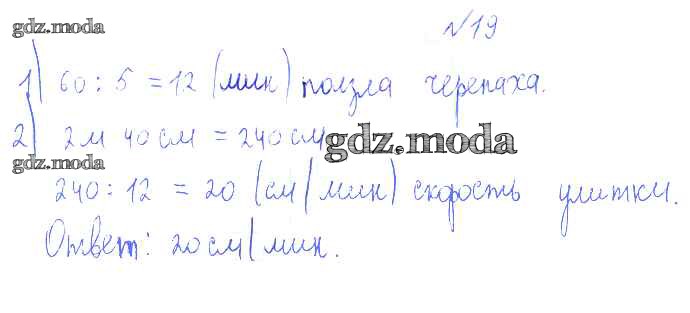 gdz.moda
№19
1) 60 : 5 = 12 (мин) ползла черепаха.
2) 2м 40 см = 240 см
gdz.moda
gdz.moda
240 : 12 = 20 (см/мин) скорость улитки.
Ответ: 20 см/мин.